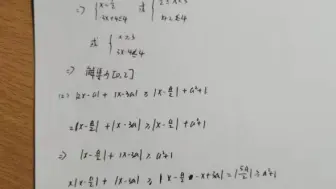 ⇒ { x<a/2 -3x+4≤4 或 { 2≤x≤3 x-2≤4
或 { x≥3 3x-4≤4
⇒ 解集为[0,2]
(2) |2x-a| + |x-3a| ≥ |x-a/2| + a²+1
=2|x-a/2| + |x-3a| ≥ |x-a/2| + a²+1
⇒ |x-a/2| + |x-3a| ≥ a²+1
x|x-a/2| + |x-3a| ≥ |x-a/2-x+3a| = |5a/2| ≥ a²+1